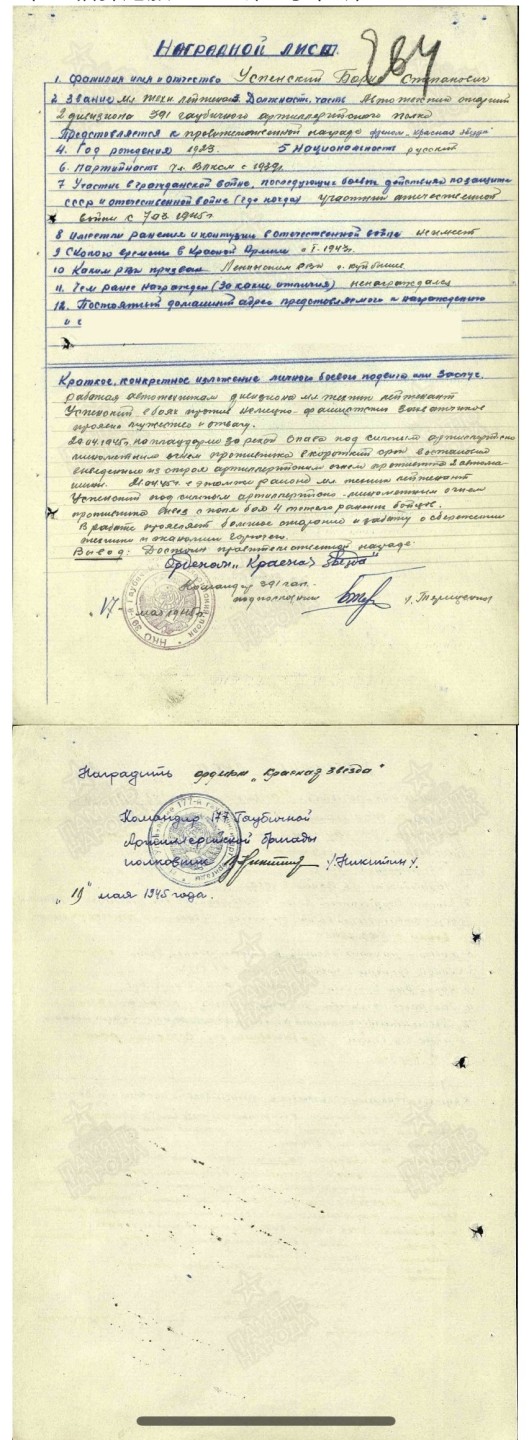 Наградной лист.
264
1. Фамилия имя и отчество Успенский Борис Степанович
2 Звание мл техн лейтенант 3. Должность, часть Автотехник
2 дивизиона 391 гаубичного артиллерийского полка
Представляется к правительственной награде орден "Красная звезда"
4. Год рождения 1923. 5 Национальность русский
6. Партийность чл. ВЛКСМ с 1939г.
7 Участие в гражданской войне, последующие боевые действия по защите
СССР и отечественной войне (где когда) участник отечественной
войны с 1945г
8 имеет ли ранения и контузии в отечественной войне не имеет
9 С какого времени в Красной Армии с 1943г.
10 Каким РВК призван Ленинским РВК г. Куйбышев
11. Чем ранее награжден (за какие отличия) не награждался
12. Постоянный домашний адрес представляемого к награждению
и с
Краткое, конкретное изложение личного боевого подвига или заслуг.
Работая автотехником дивизиона мл техник лейтенант
Успенский в боях против немецко-фашистских захватчиков
проявил мужество и отвагу.
04.1945г. на плацдарме за рекой под сильным артиллерийско
пулеметным огнем противника в короткий срок восстановил
выведенных из строя артиллерийским огнем противника 2 автома-
шины. в районе мл техник лейтенант
Успенский под сильным артиллерийско-пулеметным огнем
противника вывез с поля боя 4 тяжело раненых бойцов.
В работе проявляет большое старание и заботу о сбережении
и экономии горючего.
Вывод: Достоин правительственной награды:
Орденом "Красная звезда"
Командир 391 гап.
подполковник
"17" мая 1945г.
Наградить орденом "Красная звезда"
Командир 177 Гаубичной
Артиллерийской бригады
полковник /Никитин/.
"19" мая 1945 года.
ПАМЯТЬ НАРОДА